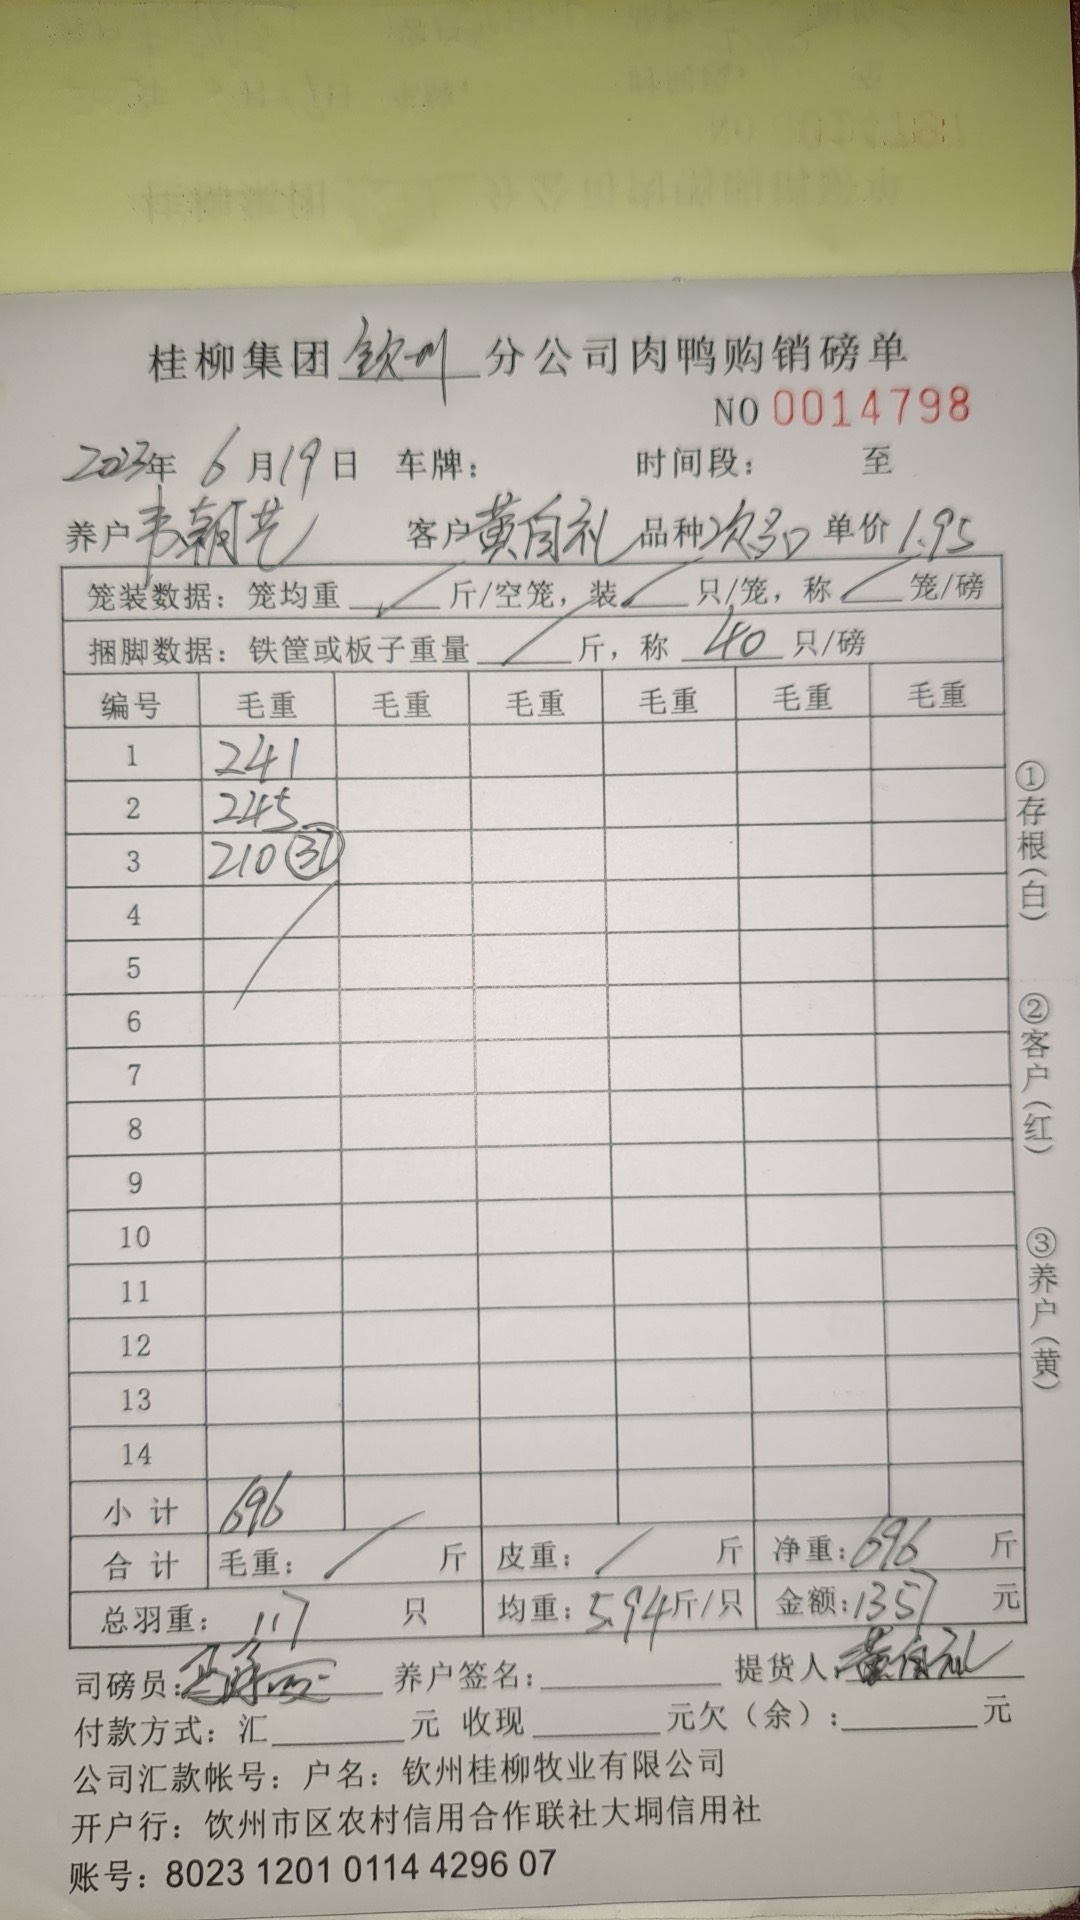 桂柳集团钦州分公司肉鸭购销磅单
NO 0014798
2023年 6月19日 车牌： 时间段： 至
养户韦朝艺 客户黄自礼 品种次品 单价1.95
笼装数据：笼均重 斤/空笼，装 只/笼，称 笼/磅
捆脚数据：铁筐或板子重量 斤，称 40 只/磅
编号 毛重 毛重 毛重 毛重 毛重 毛重
1 241
2 245
3 210 37
4
5
6
7
8
9
10
11
12
13
14
小计 696
合计 毛重： 斤 皮重： 斤 净重：696 斤
总羽重：117 只 均重：5.94斤/只 金额：1357 元
司磅员： 养户签名： 提货人：黄自礼
付款方式：汇 元 收现 元欠（余）： 元
公司汇款帐号：户名：钦州桂柳牧业有限公司
开户行：饮州市区农村信用合作联社大垌信用社
账号：8023 1201 0114 4296 07
①存根（白）
②客户（红）
③养户（黄）